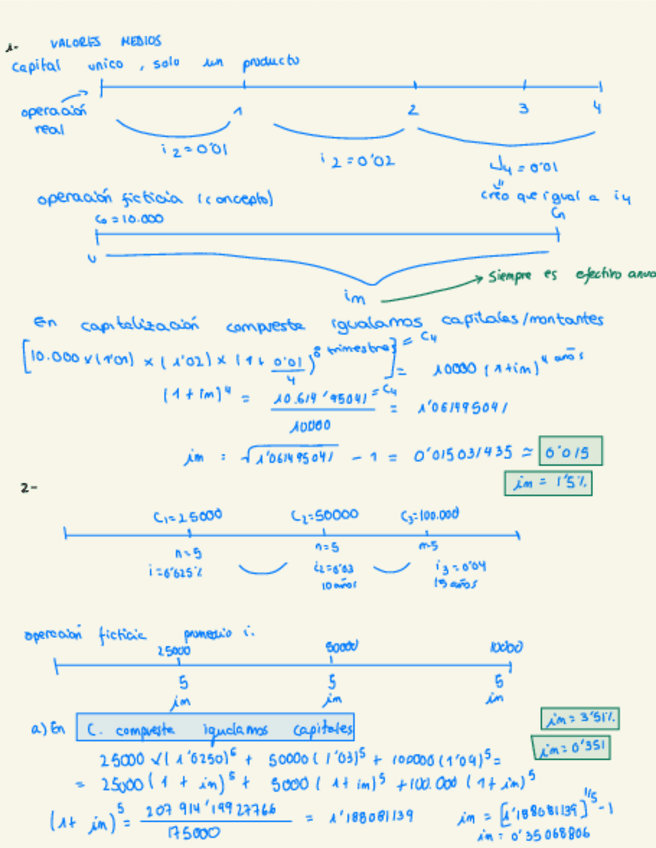 1- VALORES MEDIOS
Capital unico, solo un producto
operación real
1 2 3 4
i2=0'01 i2=0'02 J4=0'01
creo que igual a i4
operación ficticia (concepto)
C0=10.000 Cn
0
im → Siempre es efectivo anua
En capitalización compuesta igualamos capitales/montantes
[10.000 x (1'01) x (1'02) x (1+ 0'01/4)^8 trimestres] = C4 = 10000 (1+im)^4 años
(1+im)^4 = 10.614'95041 = C4 / 10000 = 1'061495041
im = √1'061495041 - 1 = 0'015031435 ≃ 0'015
im = 1'5%
2-
C1=25000 C2=50000 C3=100.000
n=5 n=5 n=5
i=0'025% i2=0'03 i3=0'04
10 años 15 años
operación ficticia promedio i.
25000 50000 10000
5 5 5
im im im
a) En C. compuesta igualamos capitales
im = 3'51%
im = 0'351
25000 x (1'0250)^5 + 50000 (1'03)^5 + 100000 (1'04)^5 =
= 25000 (1 + im)^5 + 5000 (1+ im)^5 + 100.000 (1+ im)^5
(1+ im)^5 = 207 914'19927766 / 175000 = 1'188081139 im = [1'188081139]^1/5 -1
im = 0'035068806